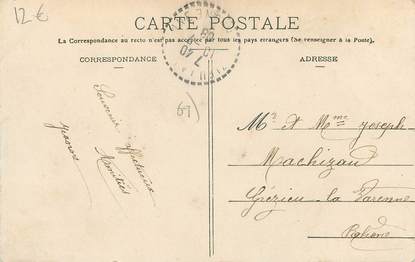 12-6
CARTE POSTALE
La Correspondance au recto n'est pas acceptée par tous les pays étrangers (Se renseigner à la Poste).
CORRESPONDANCE
ADRESSE
Souvenir affectueux
Amitiés
69
Mr et Mme Joseph
Machizaud
Grézieu-la-Varenne
Rhône